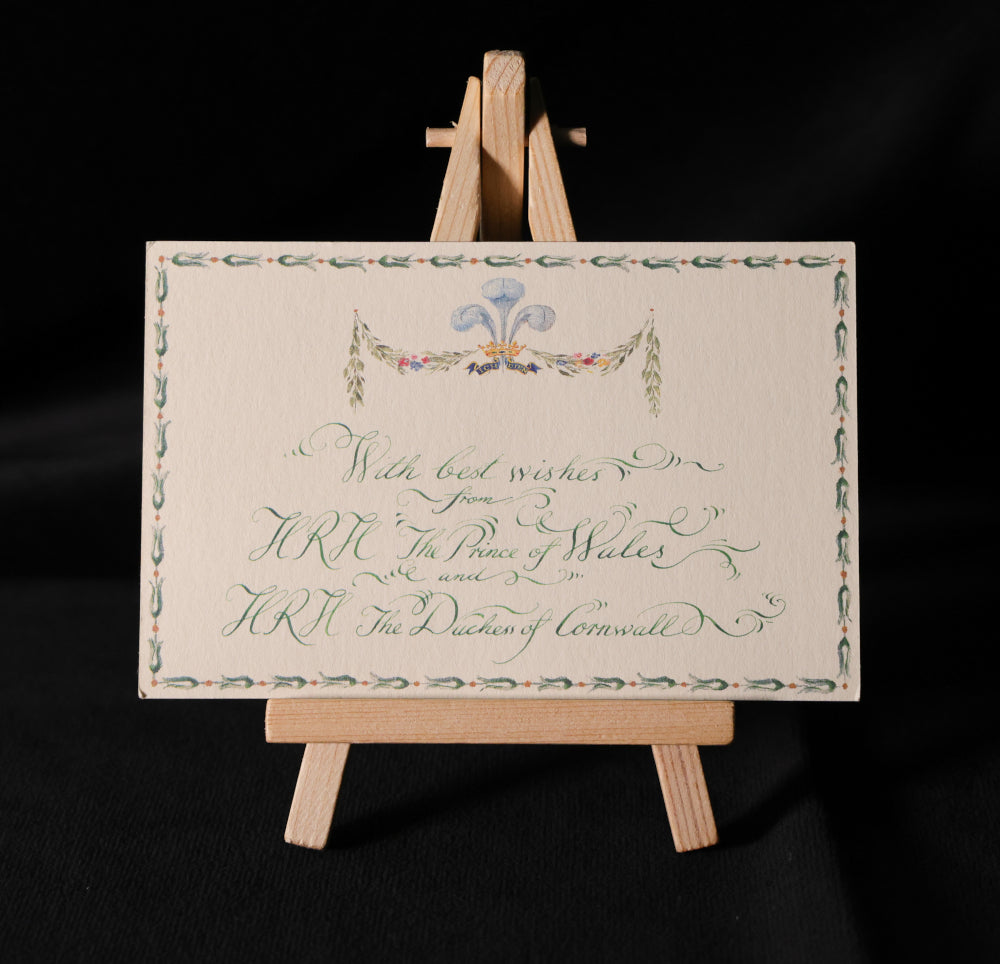 ICH DIEN
With best wishes
from
HRH The Prince of Wales
and
HRH The Duchess of Cornwall